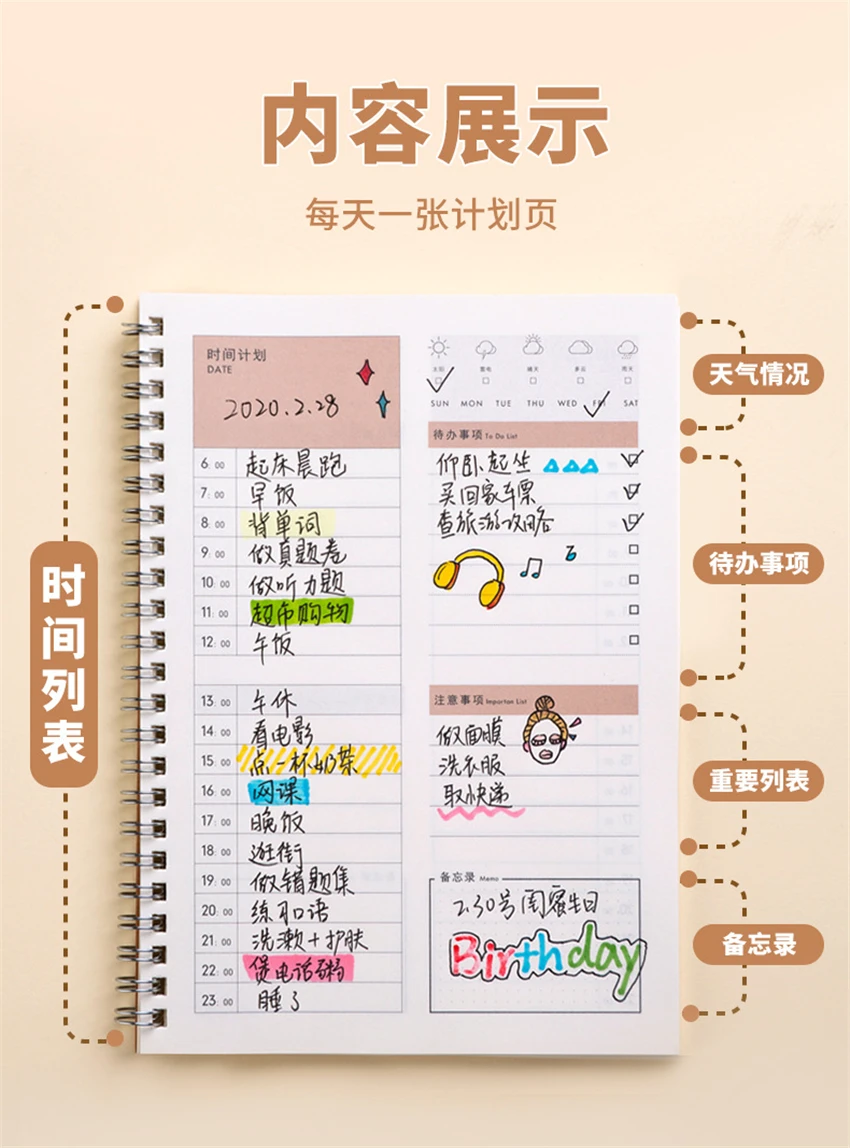 内容展示
每天一张计划页
时间列表
时间计划
DATE
2020.2.28
6:00 起床晨跑
7:00 早饭
8:00 背单词
9:00 做真题卷
10:00 做听力题
11:00 超市购物
12:00 午饭
13:00 午休
14:00 看电影
15:00 点一杯奶茶
16:00 网课
17:00 晚饭
18:00 逛街
19:00 做错题集
20:00 练习口语
21:00 洗漱+护肤
22:00 煲电话粥
23:00 睡了
天气情况
雷电
多云
雨天
SUN MON TUE THU WED FRI SAT
待办事项
待办事项 To Do List
仰卧起坐
买回家车票
查旅游攻略
重要列表
注意事项 Importan List
做面膜
洗衣服
取快递
备忘录
备忘录 Memo
2.30号周蜜生日
Birthday